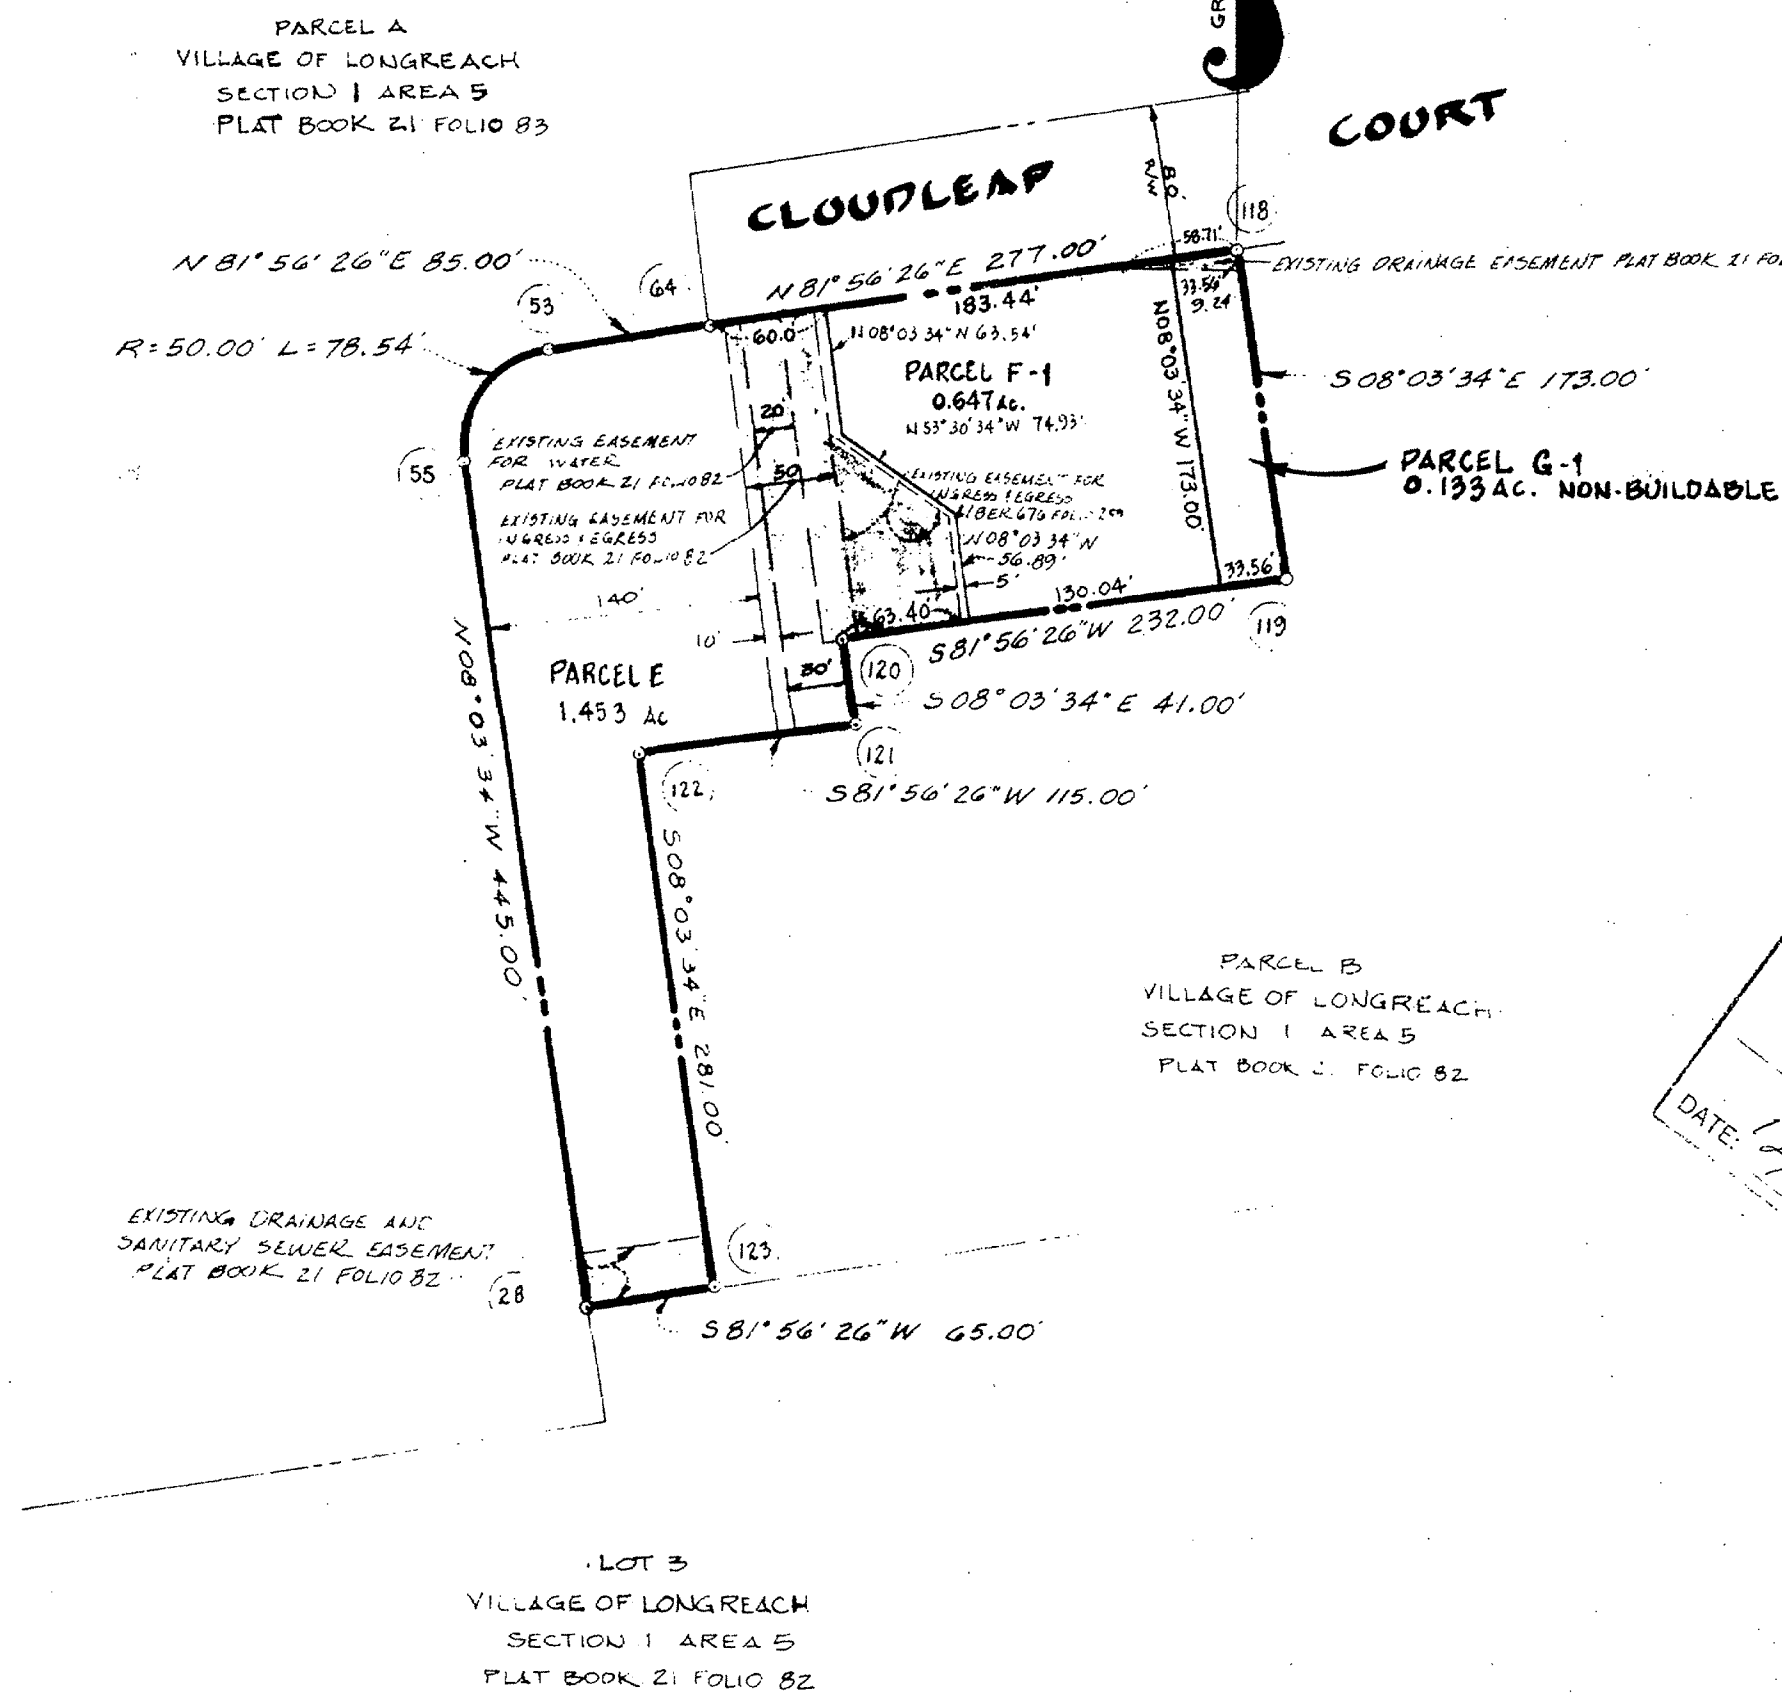 PARCEL A
VILLAGE OF LONGREACH
SECTION 1 AREA 5
PLAT BOOK 21 FOLIO 83
GR
COURT
CLOUDLEAP
80'
R/W
118
N 81° 56' 26" E 85.00'
64
53
N 81° 56' 26" E 277.00'
58.71'
EXISTING DRAINAGE EASEMENT PLAT BOOK 21 FO
183.44'
33.56'
9.24
R=50.00' L=78.54'
60.0'
N 08° 03 34" N 63.54'
PARCEL F-1
0.647 Ac.
N 53° 30' 34" W 74.93'
N08° 03' 34" W 173.00'
S 08° 03' 34" E 173.00'
PARCEL G-1
0.133 AC. NON-BUILDABLE
55
20'
EXISTING EASEMENT
FOR WATER
PLAT BOOK 21 FOLIO 82
50'
EXISTING EASEMENT FOR
INGRESS & EGRESS
PLAT BOOK 21 FOLIO 82
EXISTING EASEMENT FOR
INGRESS & EGRESS
LIBER 676 FOLIO
N 08° 03 34" N
56.89'
5'
140'
10'
63.40'
130.04'
33.56'
S 81° 56' 26" W 232.00'
119
PARCEL E
1.453 Ac
30'
120
S 08° 03' 34" E 41.00'
121
S 81° 56' 26" W 115.00'
122
N 08° 03' 34" W 445.00'
S 08° 03' 34" E 281.00'
PARCEL B
VILLAGE OF LONGREACH
SECTION 1 AREA 5
PLAT BOOK FOLIO 82
DATE:
EXISTING DRAINAGE AND
SANITARY SEWER EASEMENT
PLAT BOOK 21 FOLIO 82
28
123
S 81° 56' 26" W 65.00'
LOT 3
VILLAGE OF LONGREACH
SECTION 1 AREA 5
PLAT BOOK 21 FOLIO 82